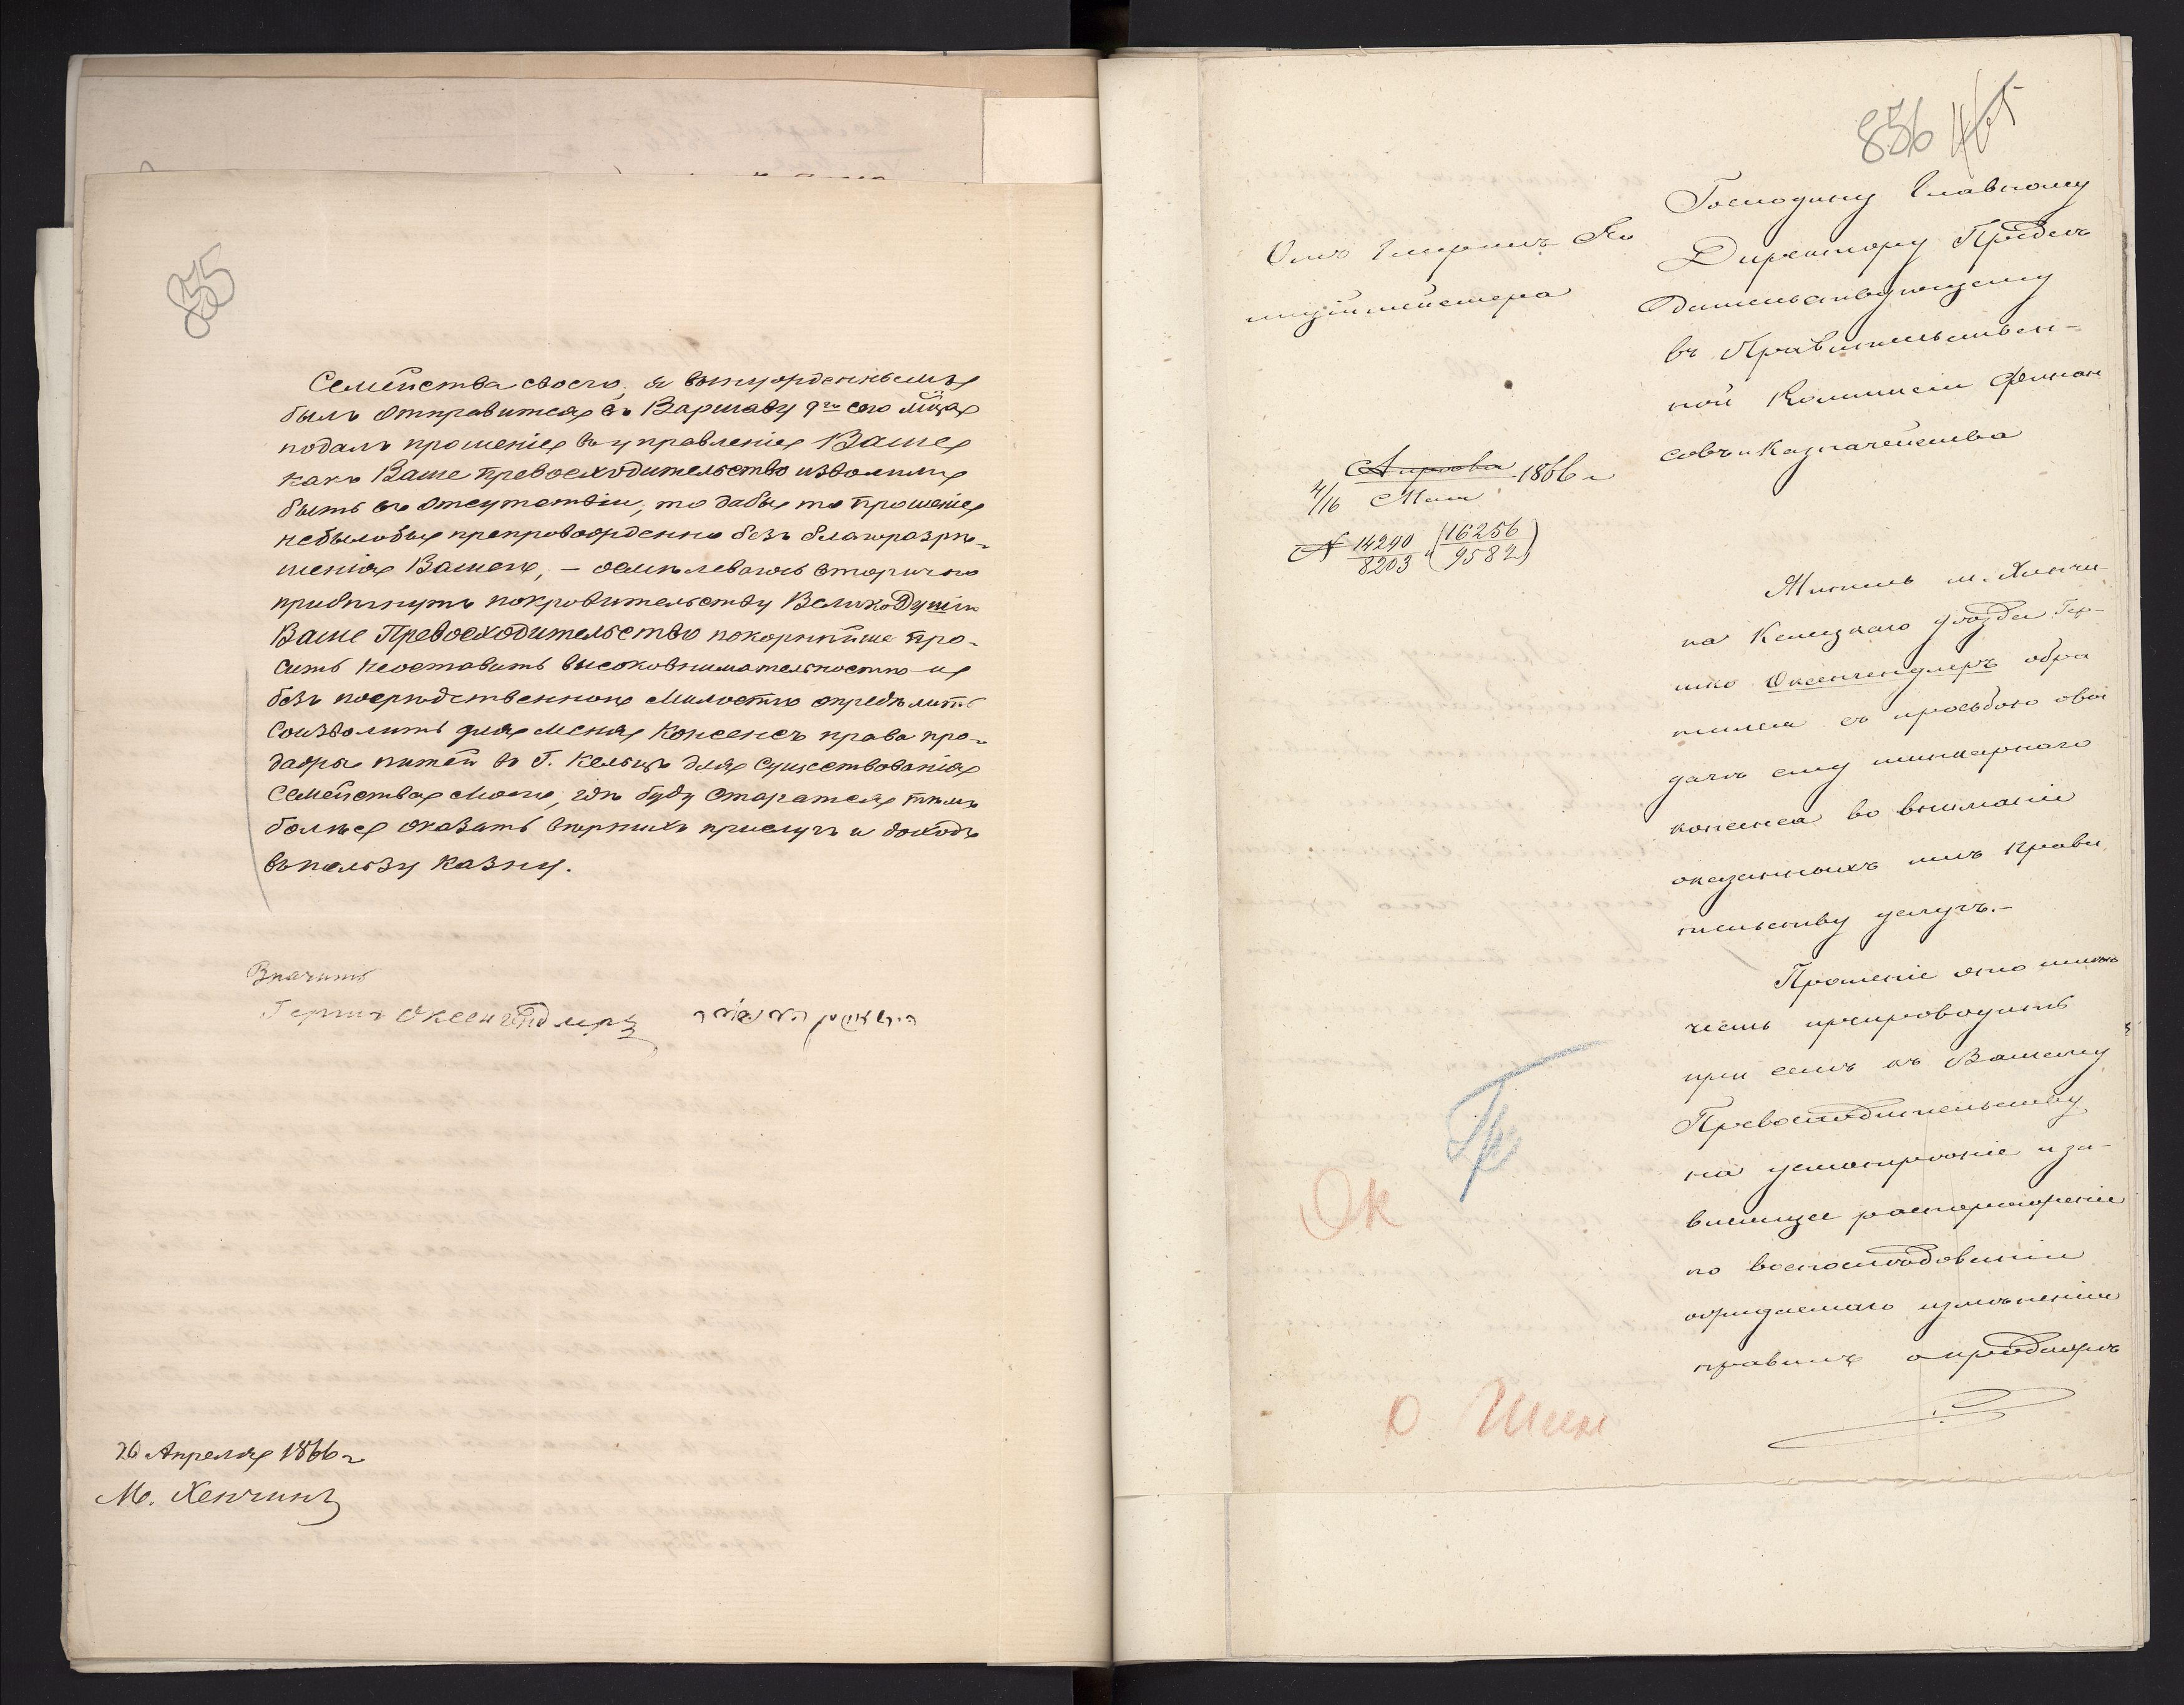 855
Семейства своего, я вынужденнымъ
былъ отправится въ Варшаву 9го сего м̃ца
подалъ прошеніе въ управленіе Ваше
какъ Ваше Превосходительство изволили
быть въ отсутствіи, то дабы то прошеніе
небылобы препровожденно безъ благоразрѣ-
шенія Вашего, – осмѣлеваюсь вторично
прибѣгнуть покровительству Великодушію
Ваше Превосходительство покорнѣйше про-
сить неоставить высоковнимательностію и
безъ посредственною Милостію опредѣлить
Соизволить для меня Консенсъ права про-
дажи питей въ Г. Кельцѣ для существованія
Семейства Моего, гдѣ буду старатся тѣмъ
болѣе оказать вѣрныхъ прислугъ и доходъ
въ пользу казну.
Значитъ
Гершъ Оксенгендлеръ
26 Апреля 1866 г
М. Хенчинъ
856 465
Отъ Генералъ По
лиціймейстера
Апрѣля
4/16 Мая 1866 г
N 14240/8203 и (16256/9582)
Ок
О Шин
Господину Главному
Директору Предсѣ
дательствующему
въ Правительствен-
ной Коммисіи Финан
совъ и Казначейства
Житель м. Хенчи-
на Келецкаго уѣзда Гер-
шко Оксенгендлеръ обра
тился съ просьбою о вы
дачѣ ему шинкарнаго
консенса во вниманіи
оказанныхъ имъ Прави
тельству услугъ.–
Прошеніе это имѣю
честь препроводить
при семъ къ Вашему
Превосходительству
на усмотрѣніе и за-
висящее распоряженіе
по воспослѣдованіи
ожидаемаго измѣненія
правилъ о продажѣ